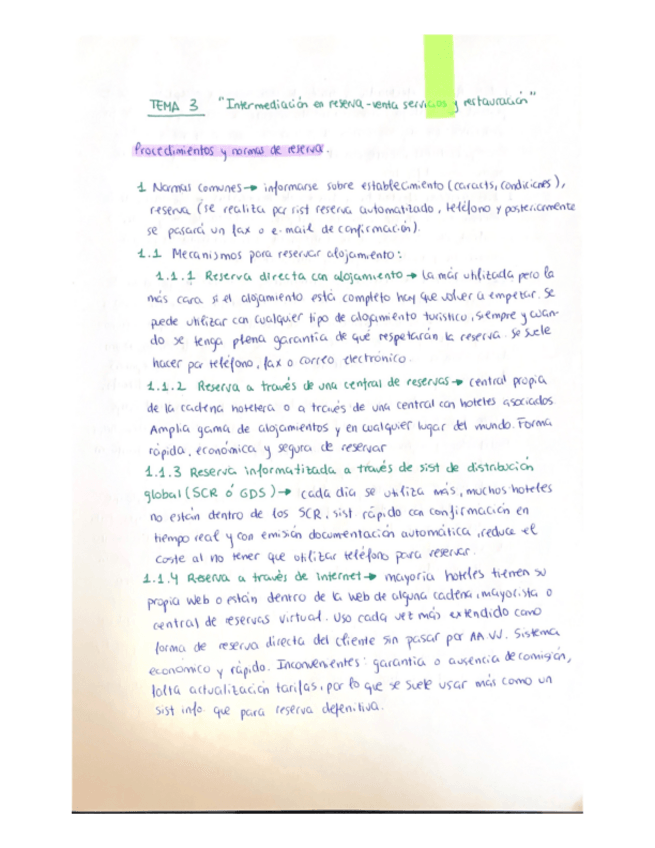 TEMA 3 "Intermediación en reserva-venta servicios y restauración"
Procedimientos y normas de reserva.
1 Normas comunes → informarse sobre establecimiento (caracts, condiciones),
reserva (se realiza por sist reserva automatizado, teléfono y posteriormente
se pasará un fax o e-mail de confirmación).
1.1 Mecanismos para reservar alojamiento:
1.1.1 Reserva directa con alojamiento → La más utilizada pero la
más cara si el alojamiento está completo hay que volver a empezar. Se
puede utilizar con cualquier tipo de alojamiento turístico, siempre y cuan-
do se tenga plena garantía de que respetarán la reserva. Se suele
hacer por teléfono, fax o correo electrónico.
1.1.2 Reserva a través de una central de reservas → central propia
de la cadena hotelera o a través de una central con hoteles asociados
Amplia gama de alojamientos y en cualquier lugar del mundo. Forma
rápida, económica y segura de reservar
1.1.3 Reserva informatizada a través de sist de distribución
global (SCR ó GDS) → cada día se utiliza más, muchos hoteles
no están dentro de los SCR, sist rápido con confirmación en
tiempo real y con emisión documentación automática, reduce el
coste al no tener que utilizar teléfono para reservar.
1.1.4 Reserva a través de internet → mayoría hoteles tienen su
propia web o están dentro de la web de alguna cadena, mayorista o
central de reservas virtual. Uso cada vez más extendido como
forma de reserva directa del cliente sin pasar por AAVV. Sistema
económico y rápido. Inconvenientes: garantía o ausencia de comisión,
falta actualización tarifas, por lo que se suele usar más como un
sist info que para reserva definitiva.